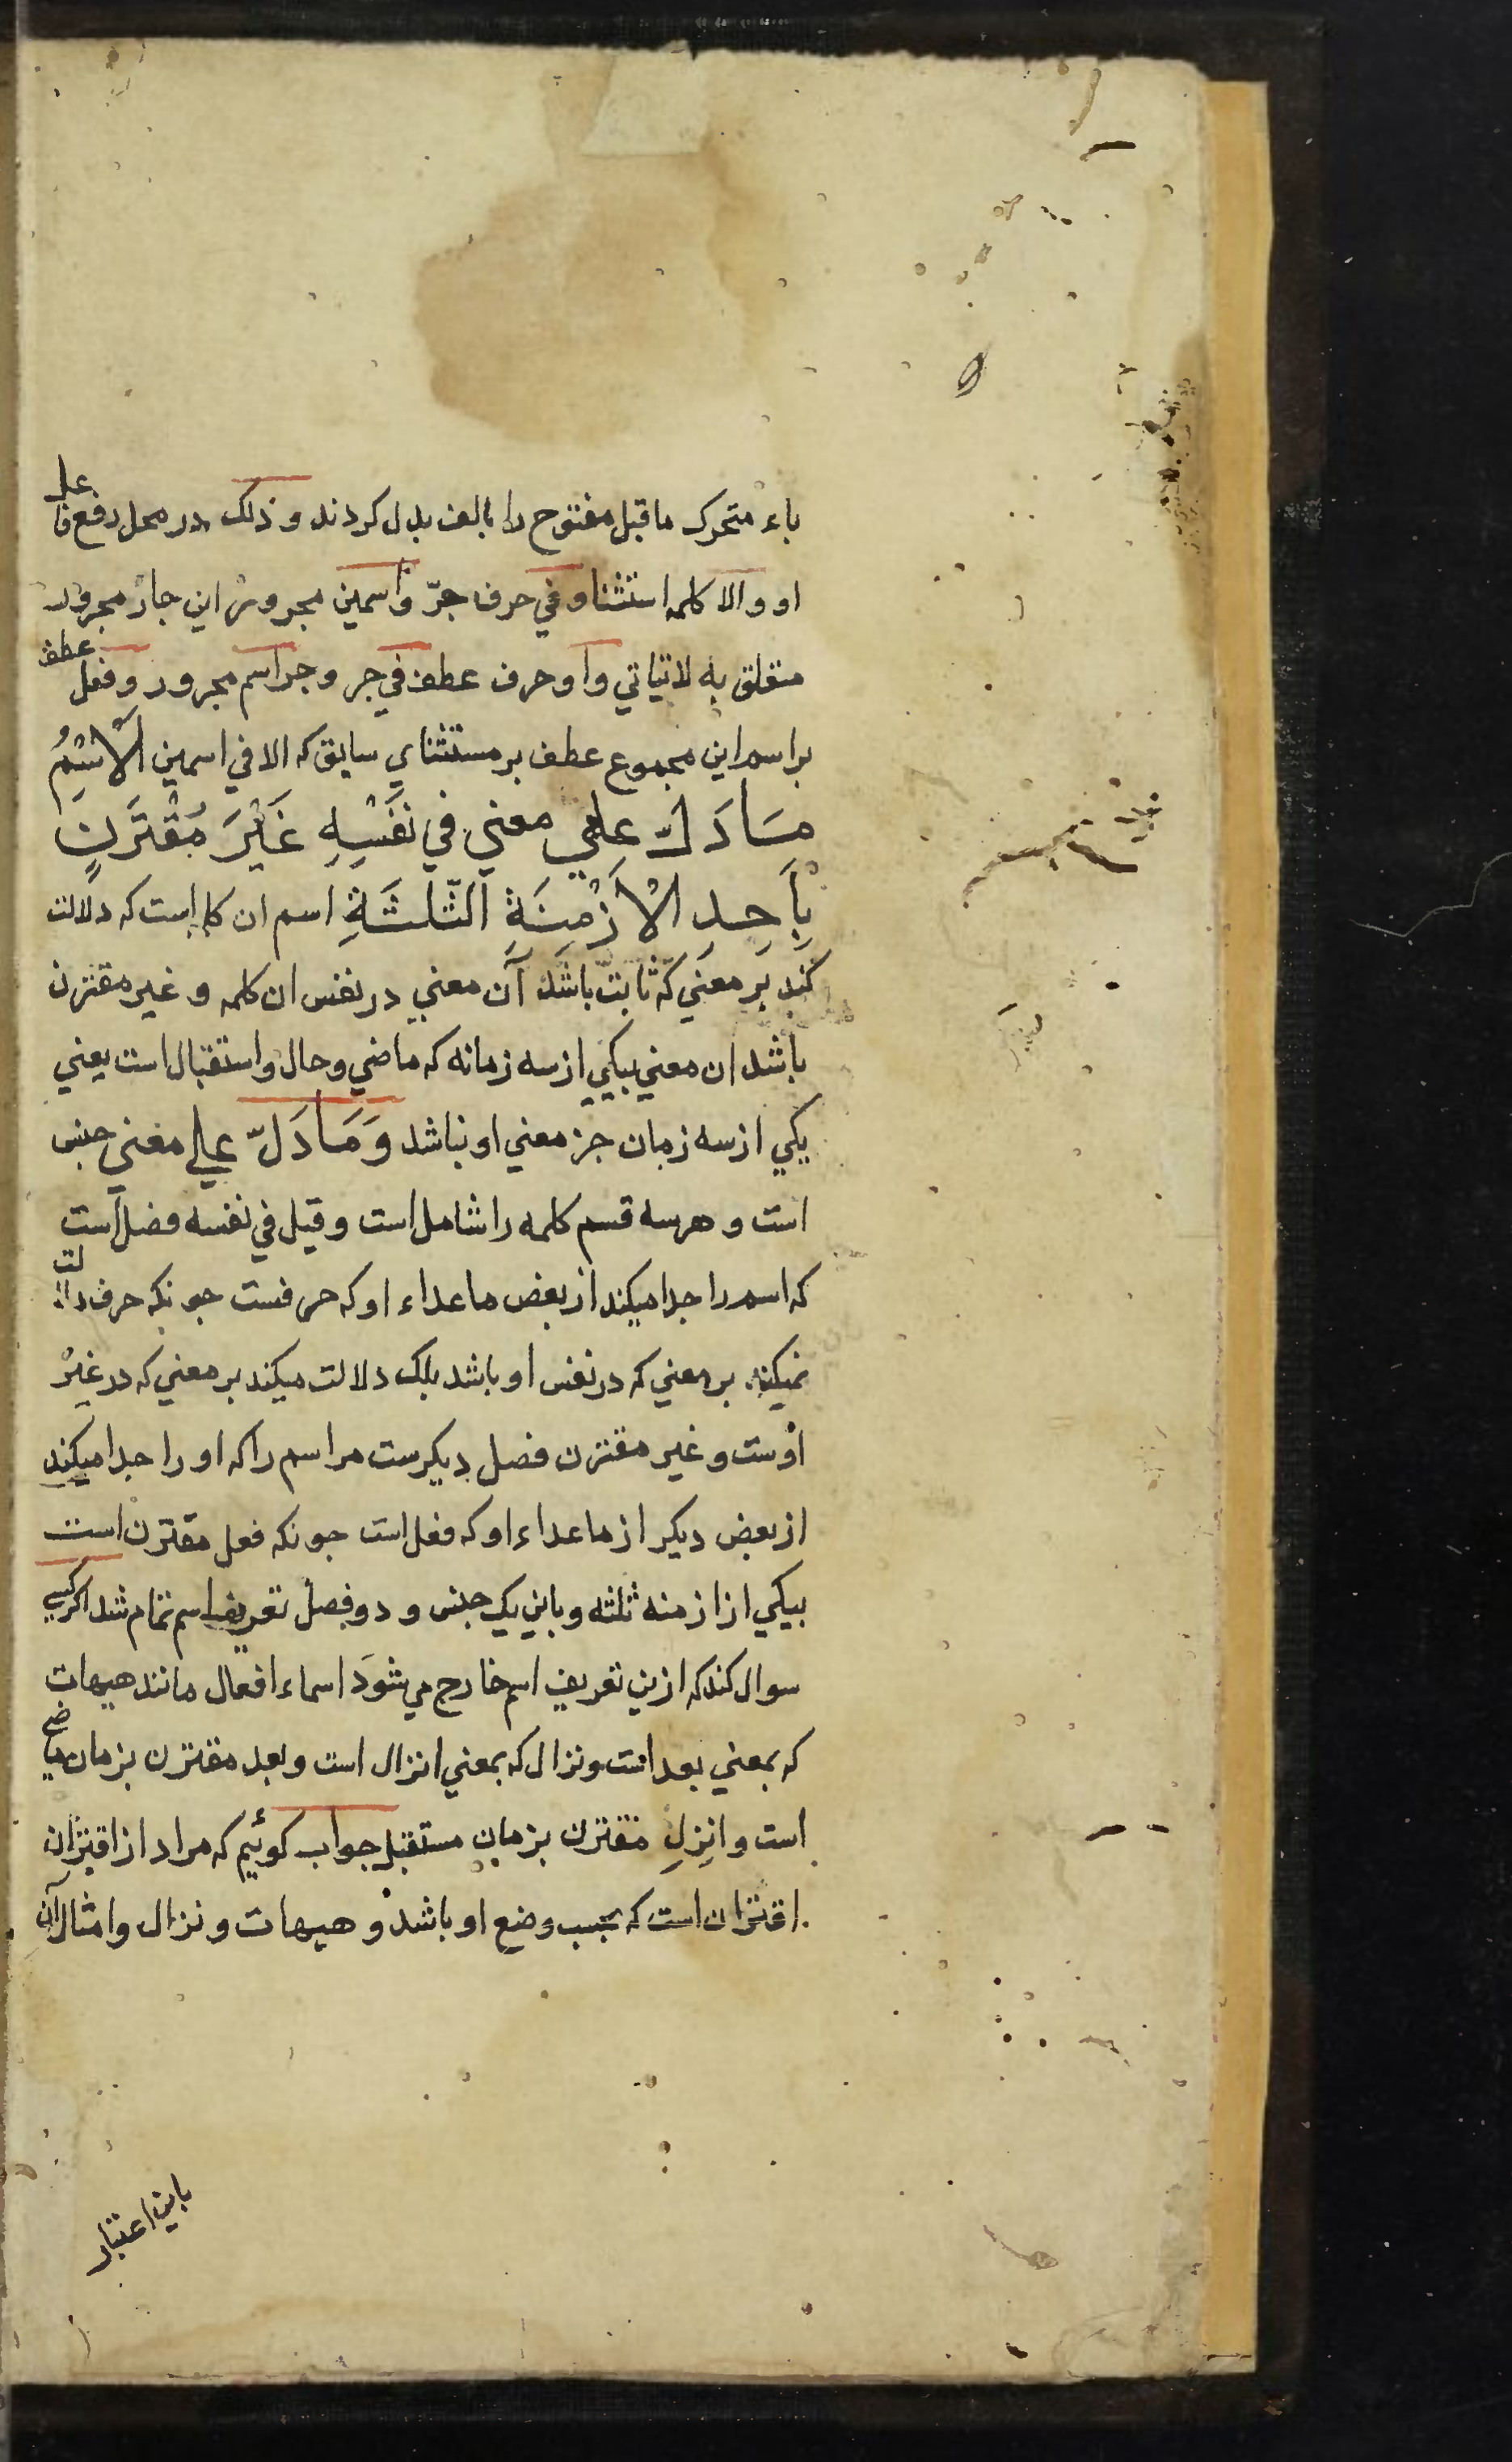 یاء متحرک ماقبل مفتوح را بالف بدل کردند و ذلک در محل رفع فاعل
او و الا کلمه استثنا و في حرف جرّ و اسمین مجرورش این جار مجرور
متعلق به لایتاتي و او حرف عطف في جر و جر اسم مجرور و فعل عطف
بر اسم این مجموع عطف بر مستثناي سابق که الا في اسمین اَلْاِسْمُ
مَا دَلَّ علي معني في نَفْسِهِ غَیْرَ مُقْتَرَنٍ
بِاَحِدِ الْاَزْمِنَةِ الثَّلٰثَةِ اسم ان کلمه است که دلالت
کند بر معني که ثابت باشد آن معني در نفس ان کلمه و غیر مقترن
باشد ان معني بیکي از سه زمانه که ماضي و حال و استقبال است یعني
یکي از سه زمان جز معني او نباشد وَ مَا دَلّ علي معني جنس
است و هر سه قسم کلمه را شامل است و قیل في نفسه فصل است
که اسم را جدا میکند از بعض ماعداء او که حرفست جونکه حرف دلالت
نمیکند بر معني که در نفس او باشد بلک دلالت میکند بر معني که در غیر
اوست و غیر مقترن فصل دیکرست مر اسم را که او را جدا میکند
از بعض دیکر از ماعداء او که فعل است جونکه فعل مقترن است
بیکي از ازمنه ثلثه و باین یک جنس و دو فصل تعریف اسم تمام شد اکر کسي
سوال کند که ازین تعریف اسم خارج مي شود اسماء افعال مانند هیهات
که بمعني بعد است و نزال که بمعني انزال است و بعد مقترن بزمان ماضي
است و انزل مقترن بزمان مستقبل جواب کوئیم که مراد از اقتران
اقتران است که بحسب وضع او باشد و هیهات و نزال و امثال آن
باین اعتبار